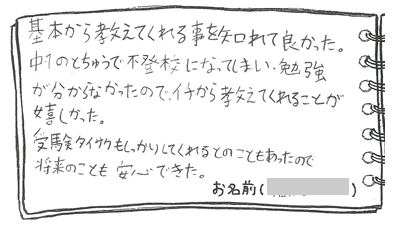 基本から教えてくれる事を知れて良かった。
中1のとちゅうで不登校になってしまい、勉強
が分からなかったので、イチから教えてくれることが
嬉しかった。
受験タイサクもしっかりしてくれるとのこともあったので
将来のことも安心できた。
お名前( )